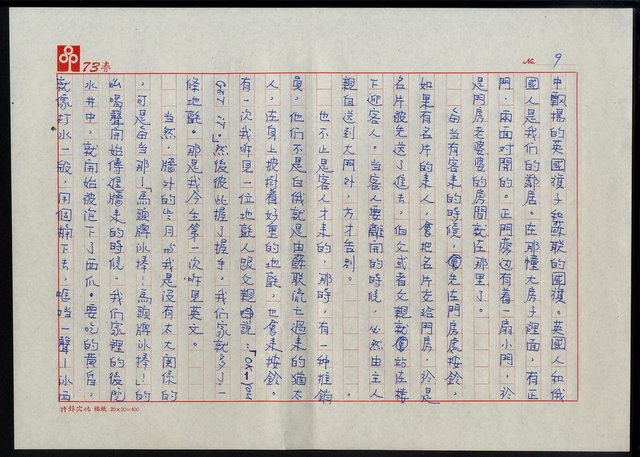 73春
No. 9
中飄揚的英國旗子和蘇聯的國旗。英國人和俄
國人是我們的鄰居。在那幢大房子裡面,有正
門,兩面對開的。正門旁边有着一扇小門,於
是門房老婆婆的房間就在那里了。
每当有客来的時候,先在門房處按鈴,
如果有名片的来人,會把名片交給門房,於是
名片被先送了進去,伯父或者父親就站在樓
下迎客人。当客人要離開的時候,必然由主人
親自送到大門外,方才告别。
也不止是客人才来的,那時,有一种推銷
員,他们不是白俄就是由蘇聯流亡過来的猶太
人,在身上披掛着好重的地氈,也會来按鈴。
有一次我听見一位地氈人跟父親說:「OK—you
Get it」,然後彼此握了握手,我们家就多了一
條地氈。那是我今生第一次听見英文。
当然,牆外的岁月和我是沒有太大関係的
,可是每当那「馬頭牌冰棒!馬頭牌冰棒!」的
吆喝聲開始傳進牆来的時候,我们家裡的後院
水井中,就開始被沉下了西瓜。要吃的黄昏,
就像打水一般,用個桶下去,噹一聲—冰西
詩部穴佑稿紙 20×20=400